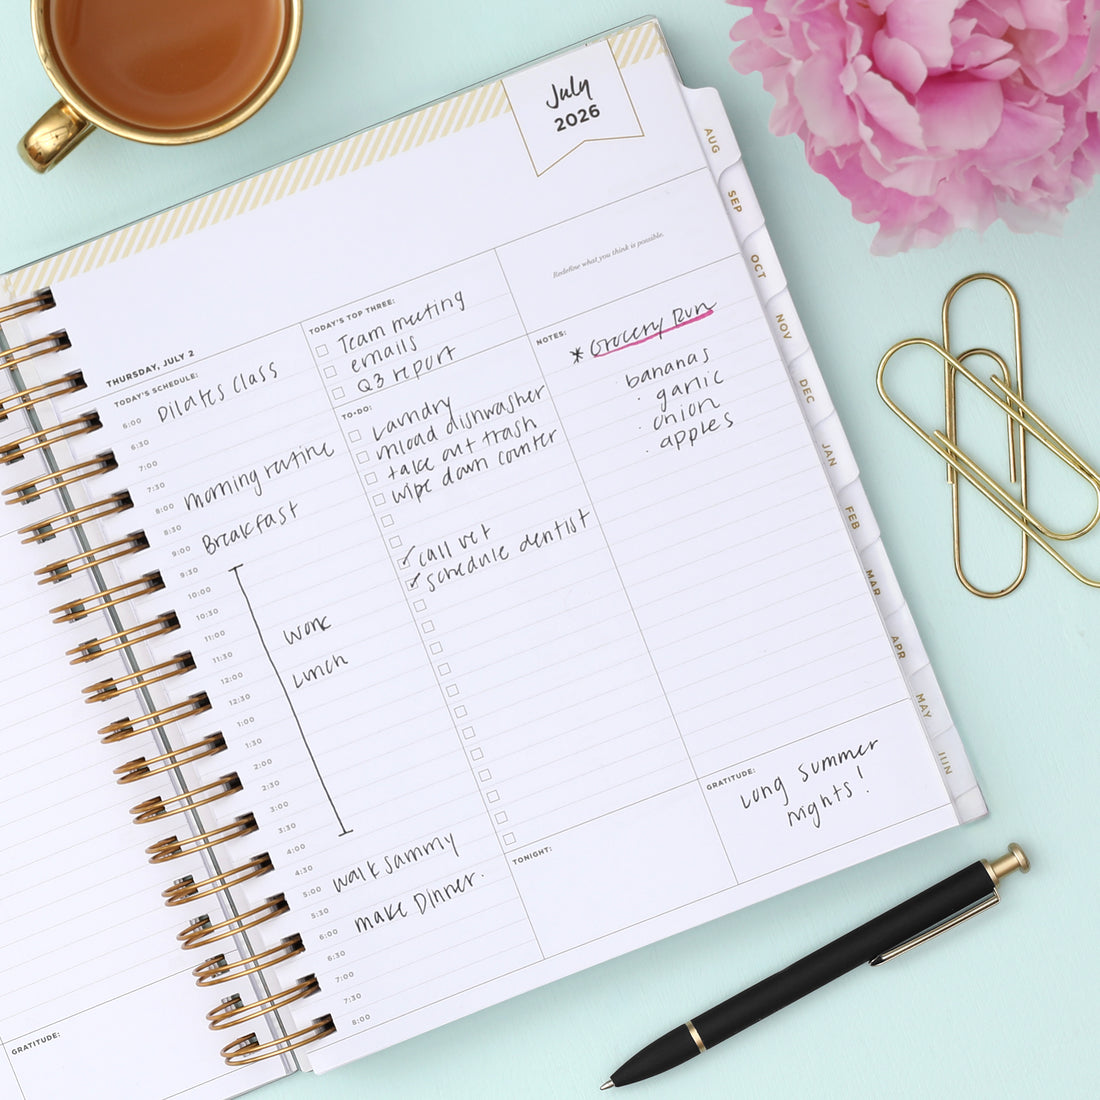 July
2026
Redefine what you think is possible.
THURSDAY, JULY 2
TODAY'S SCHEDULE:
6:00 Pilates class
6:30
7:00
7:30
8:00 morning routine
8:30
9:00 Breakfast
9:30
10:00
10:30
11:00 work
11:30
12:00 Lunch
12:30
1:00
1:30
2:00
2:30
3:00
3:30
4:00
4:30
5:00 walk sammy
5:30
6:00 make Dinner.
6:30
7:00
7:30
8:00
TODAY'S TOP THREE:
Team meeting
emails
Q3 report
TO-DO:
Laundry
unload dishwasher
take out trash
wipe down counter
call vet
schedule dentist
TONIGHT:
NOTES:
* Grocery Run
bananas
· garlic
· onion
· apples
GRATITUDE:
Long summer
nights!
AUG
SEP
OCT
NOV
DEC
JAN
FEB
MAR
APR
MAY
JUN
GRATITUDE: